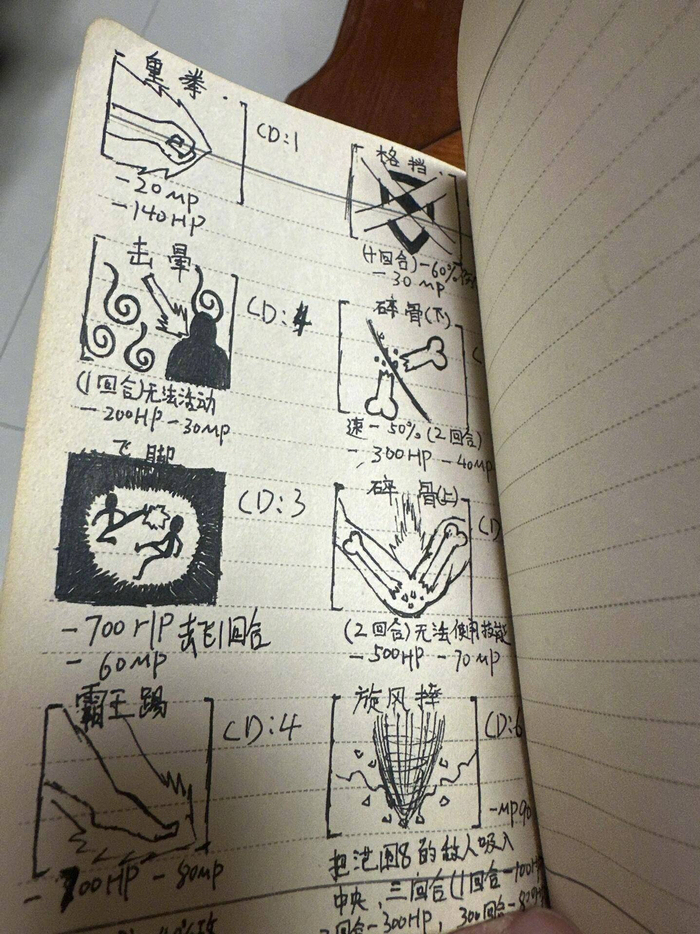 重拳
CD:1
-20MP
-140HP
击晕
CD:4
(1回合)无法活动
-200HP -30MP
飞脚
CD:3
-700HP 击飞1回合
-60MP
霸王踢
CD:4
-700HP -80MP
格挡
(1回合)-60%
-30MP
碎骨(下)
速-50%(2回合)
-300HP -40MP
碎骨(上)
CD
(2回合)无法使用技能
-500HP -70MP
旋风摔
CD:6
-MP90
把范围8的敌人吸入
中央,三回合(1回合-100H
2回合-300HP, 3回合-